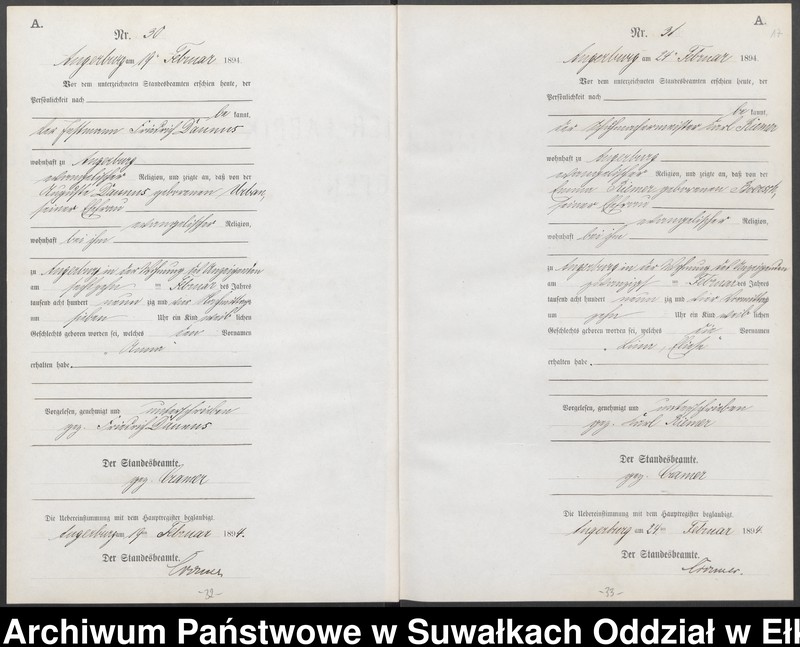 A.
Nr. 30
Angerburg am 19ten Februar 1894.
Vor dem unterzeichneten Standesbeamten erschien heute, der
Persönlichkeit nach
be kannt,
der Friedrich Daunus
wohnhaft zu Angerburg
evangelischer Religion, und zeigte an, daß von der
Auguste Daunus geborenen Urban,
seiner Ehefrau
evangelischer Religion,
wohnhaft bei ihm
zu Angerburg in der Wohnung des Anzeigenden
am ten Februar des Jahres
tausend acht hundert neun zig und vier Nachmittags
um sieben Uhr ein Kind weib lichen
Geschlechts geboren worden sei, welches den Vornamen
"Anna"
erhalten habe.
Vorgelesen, genehmigt und unterschrieben
gez. Friedrich Daunus
Der Standesbeamte.
gez. Cramer
Die Uebereinstimmung mit dem Hauptregister beglaubigt.
Angerburg am 19ten Februar 1894.
Der Standesbeamte.
Cramer
-32-
A.
Nr. 31
Angerburg am 24ten Februar 1894
Vor dem unterzeichneten Standesbeamten erschien heute, der
Persönlichkeit nach
be kannt,
der Karl Kiemer
wohnhaft zu Angerburg
evangelischer Religion, und zeigte an, daß von der
Kiemer geborenen
seiner Ehefrau
evangelischer Religion,
wohnhaft bei ihm
zu Angerburg in der Wohnung des Anzeigenden
am zwanzigsten Februar des Jahres
tausend acht hundert neun zig und vier Vormittags
um zehn Uhr ein Kind weib lichen
Geschlechts geboren worden sei, welches die Vornamen
erhalten habe.
Vorgelesen, genehmigt und unterschrieben
gez. Karl Kiemer
Der Standesbeamte.
gez. Cramer
Die Uebereinstimmung mit dem Hauptregister beglaubigt.
Angerburg am 24ten Februar 1894.
Der Standesbeamte.
Cramer.
-33-
Archiwum Państwowe w Suwałkach Oddział w Ełk